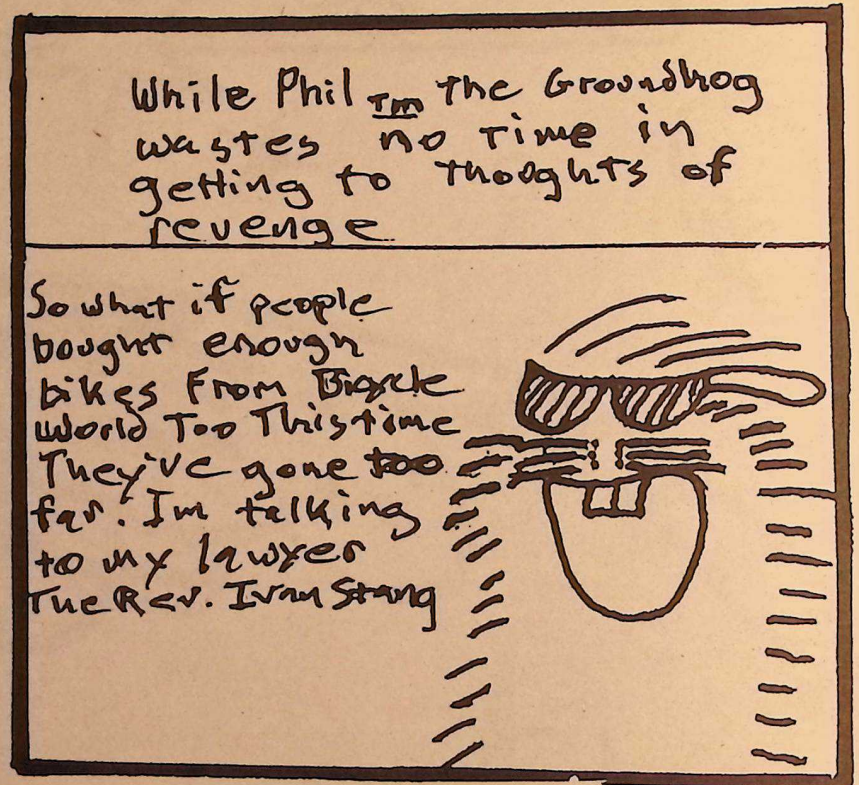 While Phil TM the Groundhog
wastes no time in
getting to thoughts of
revenge
So what if people
bought enough
bikes From Bicycle
World Too This time
They've gone too
far. Im talking
to my lawyer
The Rev. Ivan Stang